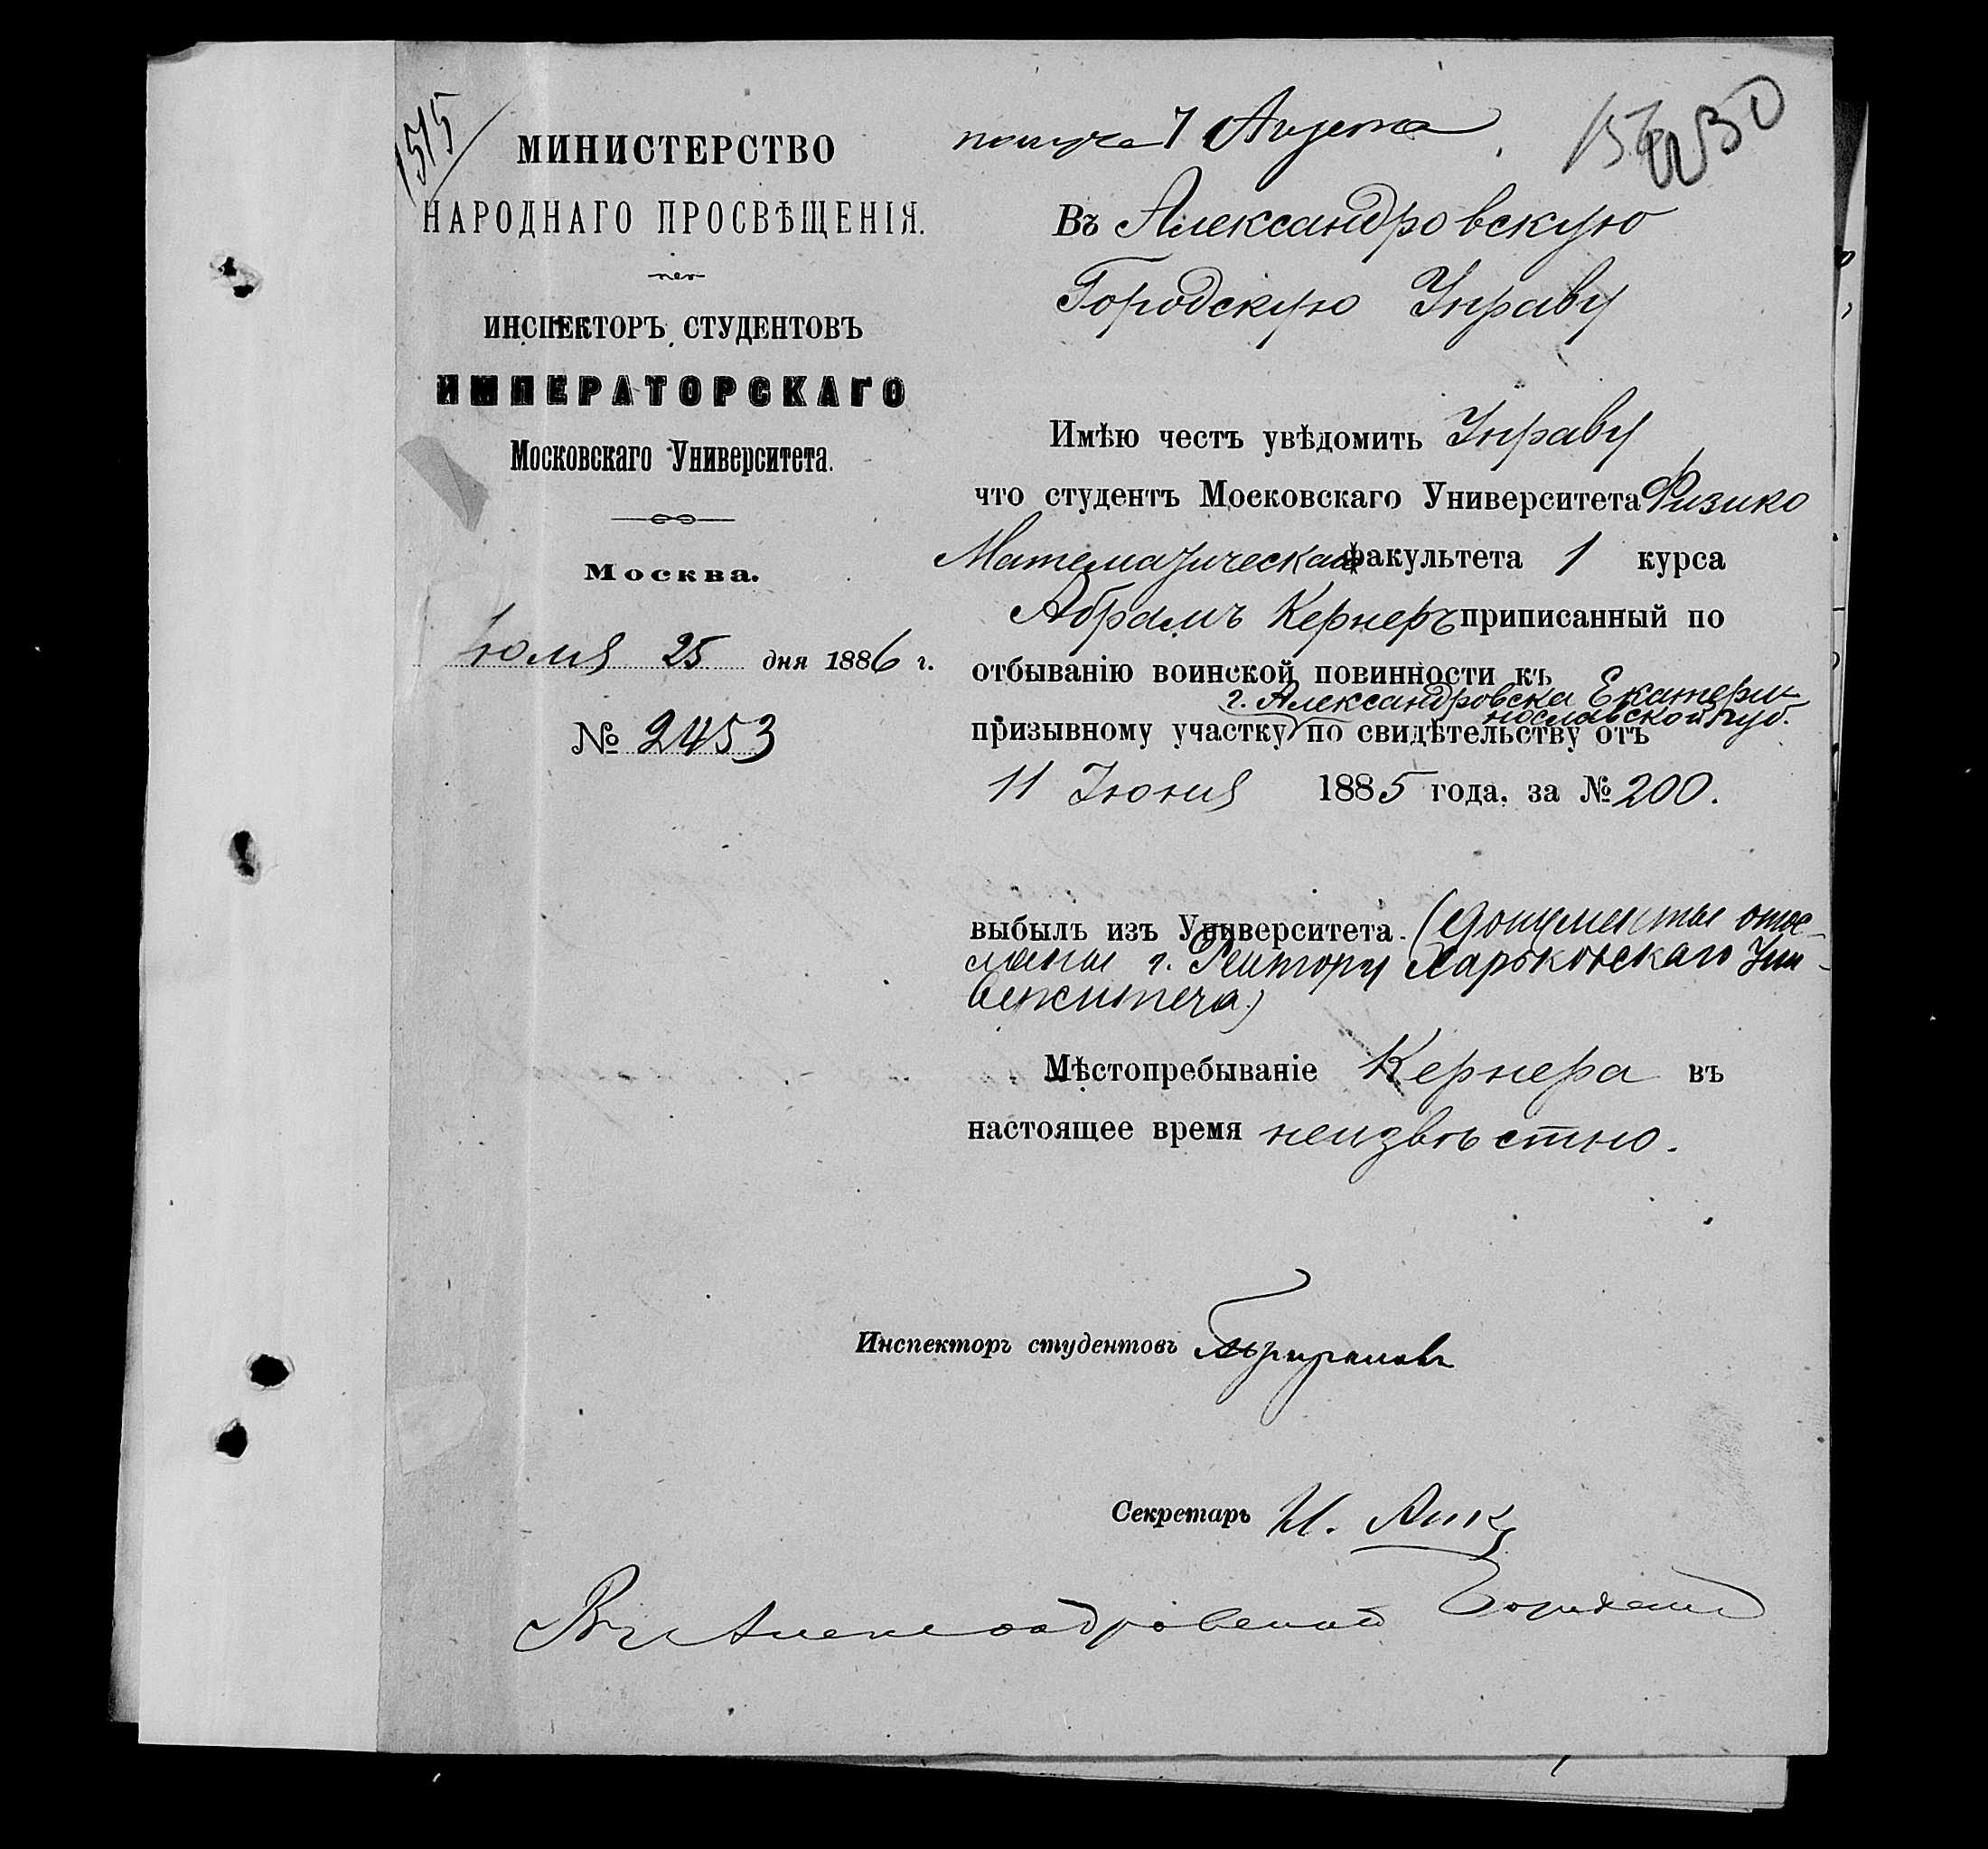 1515
МИНИСТЕРСТВО
НАРОДНАГО ПРОСВѢЩЕНІЯ.
ИНСПЕКТОРЪ СТУДЕНТОВЪ
ИМПЕРАТОРСКАГО
Московскаго Университета.
Москва.
Іюля 25 дня 1886 г.
№ 2453
7 Августа
Въ Александровскую
Городскую Управу
Имѣю честь увѣдомить Управу
что студентъ Московскаго Университета Физико
Математическаго факультета 1 курса
Абрамъ Кернеръ приписанный по
отбыванію воинской повинности къ
г. Александровска Екатери-
нославской губ.
призывному участку по свидѣтельству отъ
11 Іюня 1885 года, за № 200.
выбылъ изъ Университета. (документы отос-
ланы г. Ректору Харьковскаго Уни-
верситета)
Мѣстопребываніе Кернера въ
настоящее время неизвѣстно.
Инспекторъ студентовъ
Секретарь И.